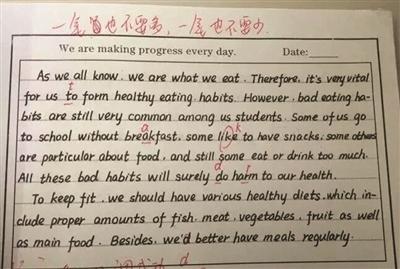 We are making progress every day. Date:
As we all know, we are what we eat. Therefore, it's very vital
t
for us to form healthy eating habits. However, bad eating ha-
bits are still very common among us students. Some of us go
a k
to school without breakfast, some like to have snacks, some others
are particular about food, and still some eat or drink too much.
d r
All these bad habits will surely do harm to our health.
To keep fit, we should have various healthy diets, which in-
clude proper amounts of fish, meat, vegetables, fruit as well
as main food. Besides, we'd better have meals regularly.
d